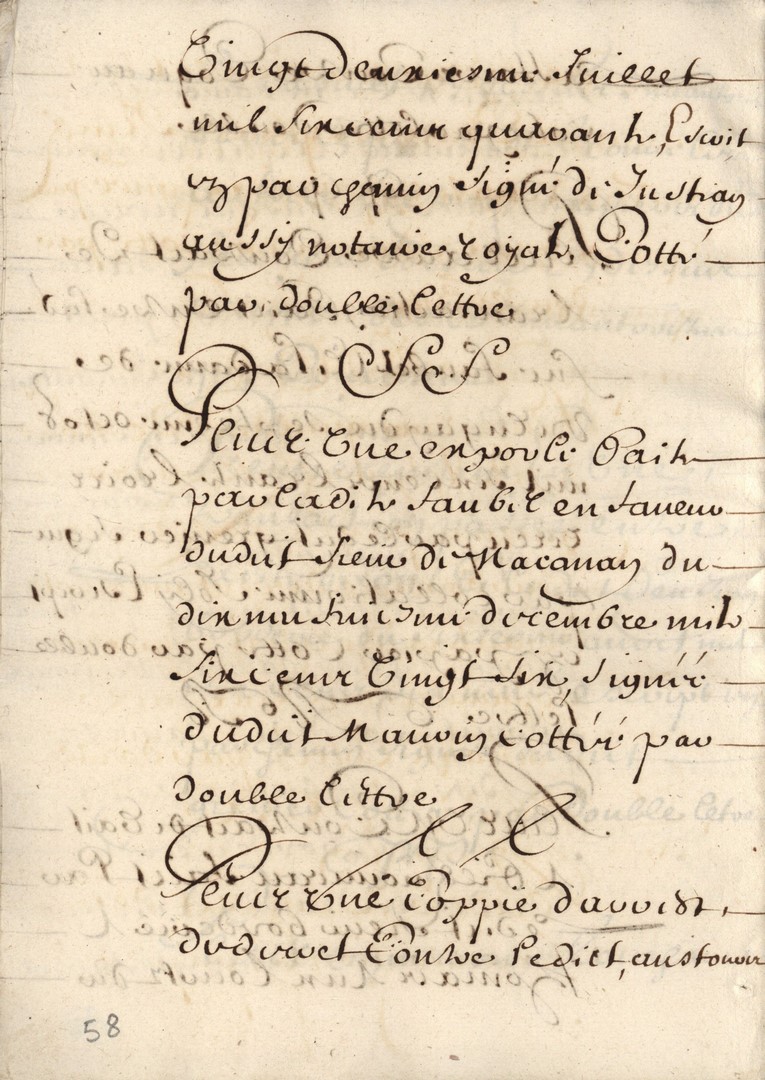 Vingt deuxiesme Juillet
mil six cens quarante, Escrit
par gamin signé de Justian
aussy notaire royal, Cotté
par double lettre
SS
Plus une en porle Paite
par ladite saubie en faveur
dudit sieur de Macanan du
dixneufiesme decembre mil
six cens vingt six, signée
dudit Mauvin Cottée par
double lettre
LL
Plus une Coppie d'arrest
de decret Contre Ledict
58